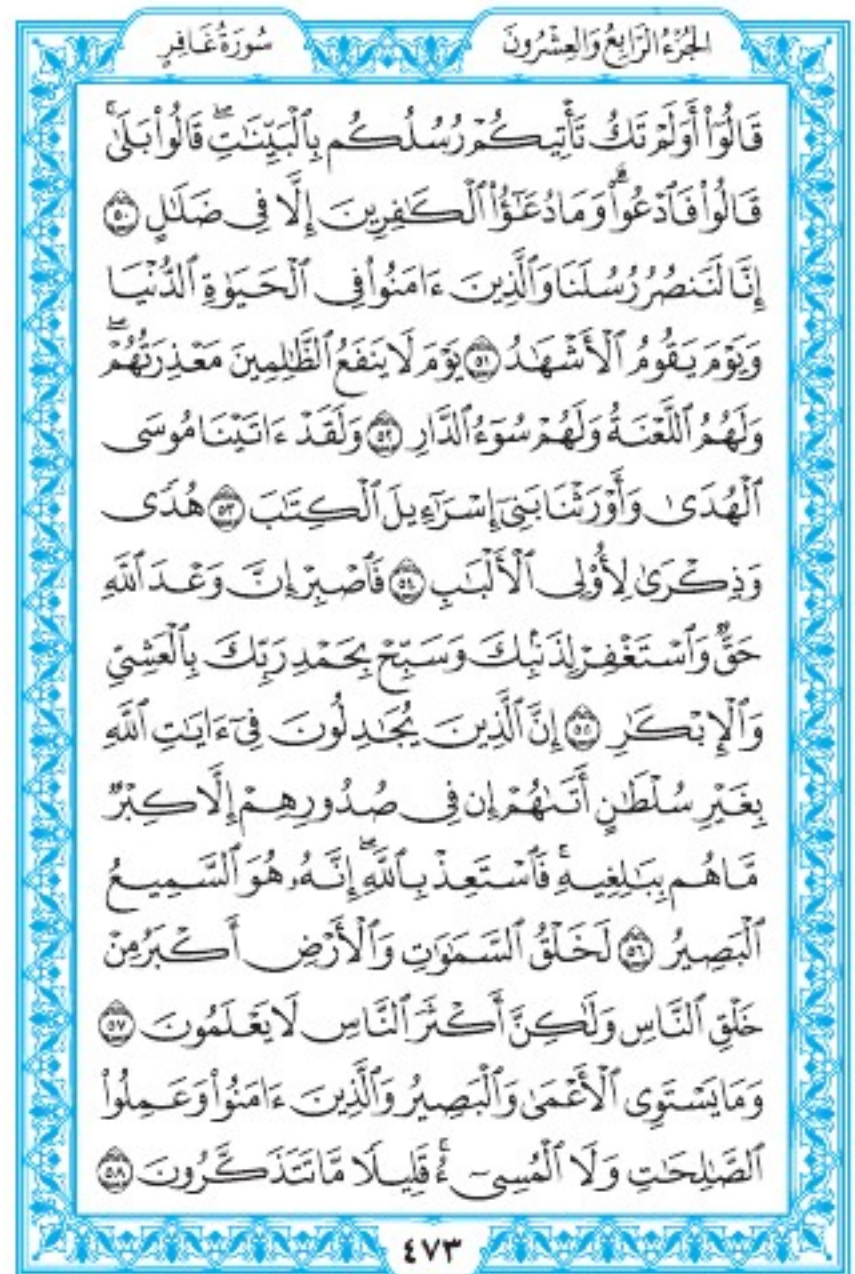 الجُزْءُ الرَّابِعُ وَالعِشْرُونَ
سُورَةُ غَافِرٍ
قَالُوٓا۟ أَوَلَمْ تَكُ تَأْتِيكُمْ رُسُلُكُم بِٱلْبَيِّنَٰتِۖ قَالُوا۟ بَلَىٰۚ
قَالُوا۟ فَٱدْعُوا۟ۗ وَمَا دُعَٰٓؤُا۟ ٱلْكَٰفِرِينَ إِلَّا فِى ضَلَٰلٍ ٥٠
إِنَّا لَنَنصُرُ رُسُلَنَا وَٱلَّذِينَ ءَامَنُوا۟ فِى ٱلْحَيَوٰةِ ٱلدُّنْيَا
وَيَوْمَ يَقُومُ ٱلْأَشْهَٰدُ ٥١ يَوْمَ لَا يَنفَعُ ٱلظَّٰلِمِينَ مَعْذِرَتُهُمْۖ
وَلَهُمُ ٱللَّعْنَةُ وَلَهُمْ سُوٓءُ ٱلدَّارِ ٥٢ وَلَقَدْ ءَاتَيْنَا مُوسَى
ٱلْهُدَىٰ وَأَوْرَثْنَا بَنِىٓ إِسْرَٰٓءِيلَ ٱلْكِتَٰبَ ٥٣ هُدًى
وَذِكْرَىٰ لِأُو۟لِى ٱلْأَلْبَٰبِ ٥٤ فَٱصْبِرْ إِنَّ وَعْدَ ٱللَّهِ
حَقٌّ وَٱسْتَغْفِرْ لِذَنۢبِكَ وَسَبِّحْ بِحَمْدِ رَبِّكَ بِٱلْعَشِىِّ
وَٱلْإِبْكَٰرِ ٥٥ إِنَّ ٱلَّذِينَ يُجَٰدِلُونَ فِىٓ ءَايَٰتِ ٱللَّهِ
بِغَيْرِ سُلْطَٰنٍ أَتَىٰهُمْ إِن فِى صُدُورِهِمْ إِلَّا كِبْرٌ
مَّا هُم بِبَٰلِغِيهِۚ فَٱسْتَعِذْ بِٱللَّهِۖ إِنَّهُۥ هُوَ ٱلسَّمِيعُ
ٱلْبَصِيرُ ٥٦ لَخَلْقُ ٱلسَّمَٰوَٰتِ وَٱلْأَرْضِ أَكْبَرُ مِنْ
خَلْقِ ٱلنَّاسِ وَلَٰكِنَّ أَكْثَرَ ٱلنَّاسِ لَا يَعْلَمُونَ ٥٧
وَمَا يَسْتَوِى ٱلْأَعْمَىٰ وَٱلْبَصِيرُ وَٱلَّذِينَ ءَامَنُوا۟ وَعَمِلُوا۟
ٱلصَّٰلِحَٰتِ وَلَا ٱلْمُسِىٓءُۚ قَلِيلًا مَّا تَتَذَكَّرُونَ ٥٨
٤٧٣